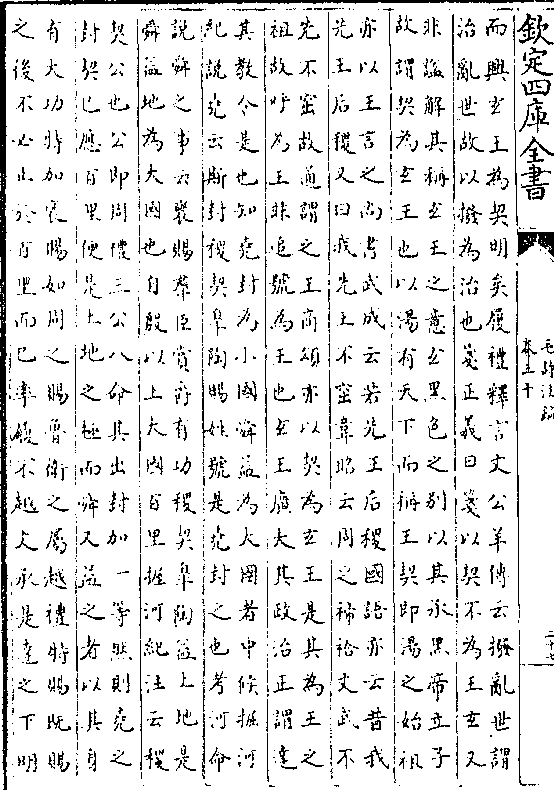 欽定四庫全書
毛詩注疏
卷三十
而興玄王為契明矣履禮釋言文公羊傳云撥亂世謂
治亂世故以撥為治也箋正義曰箋以契不為王玄又
非謚解其稱玄王之意玄黑色之別以其承黑帝立子
故謂契為玄王也以湯有天下而稱王契即湯之始祖
亦以王言之尚書武成云若先王后稷國語亦云昔我
先王后稷又曰我先王不窋韋昭云周之禘祫文武不
先不窋故通謂之王商頌亦以契為玄王是其為王之
祖故呼為王非追號為王也玄王廣大其政治正謂達
其敎令是也知堯封為小國舜益為大國者中候握河
紀說堯云斯封稷契皋陶賜姓號是堯封之也考河命
說舜之事云褒賜羣臣賞爵有功稷契皋陶益土地是
舜益地為大國也自殷以上大國百里握河紀注云稷
契公也公即周禮三公八命其出封加一等然則堯之
封契已應百里便是土地之極而舜又益之者以其身
有大功特加褒賜如周之賜魯衛之屬越禮特賜既賜
之後不必止於百里而已率履不越文承是達之下明